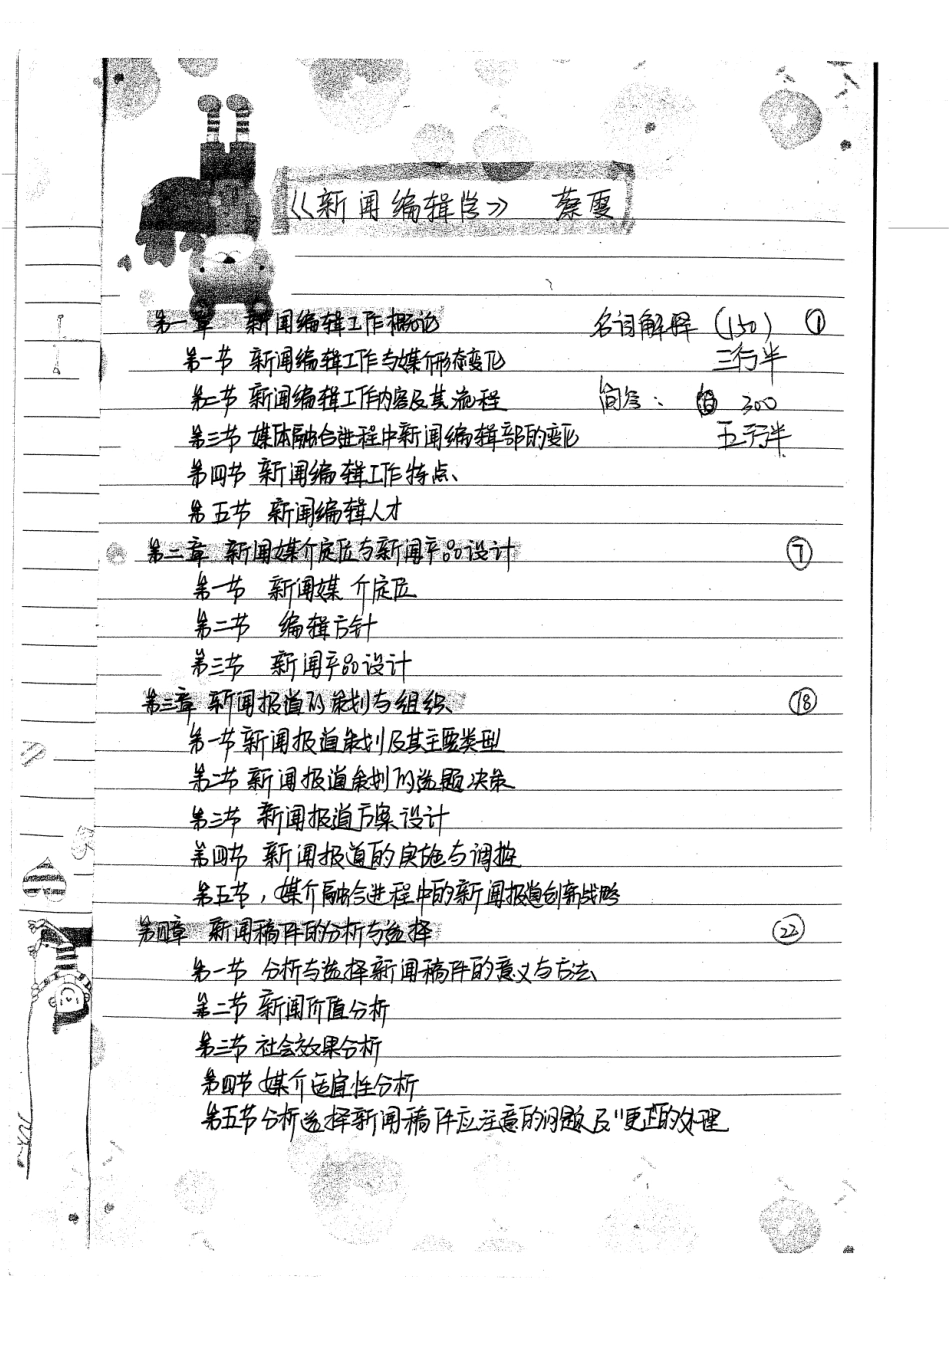 《新闻编辑学》 蔡雯
第一章 新闻编辑工作概论 名词解释 (150) ①
第一节 新闻编辑工作与媒介形态变化 三行半
第二节 新闻编辑工作内容及其流程 简答: 300
第三节 媒体融合进程中新闻编辑部的变化 五行半
第四节 新闻编辑工作特点、
第五节 新闻编辑人才
第二章 新闻媒介定位与新闻产品设计 ⑦
第一节 新闻媒介定位
第二节 编辑方针
第三节 新闻产品设计
第三章 新闻报道的策划与组织 ⑱
第一节 新闻报道策划及其主要类型
第二节 新闻报道策划的选题决策
第三节 新闻报道方案设计
第四节 新闻报道的实施与调控
第五节, 媒介融合进程中的新闻报道创新战略
第四章 新闻稿件的分析与选择 ㉒
第一节 分析与选择新闻稿件的意义与方法
第二节 新闻价值分析
第三节 社会效果分析
第四节 媒介适宜性分析
第五节 分析选择新闻稿件应注意的问题及"更正"的处理